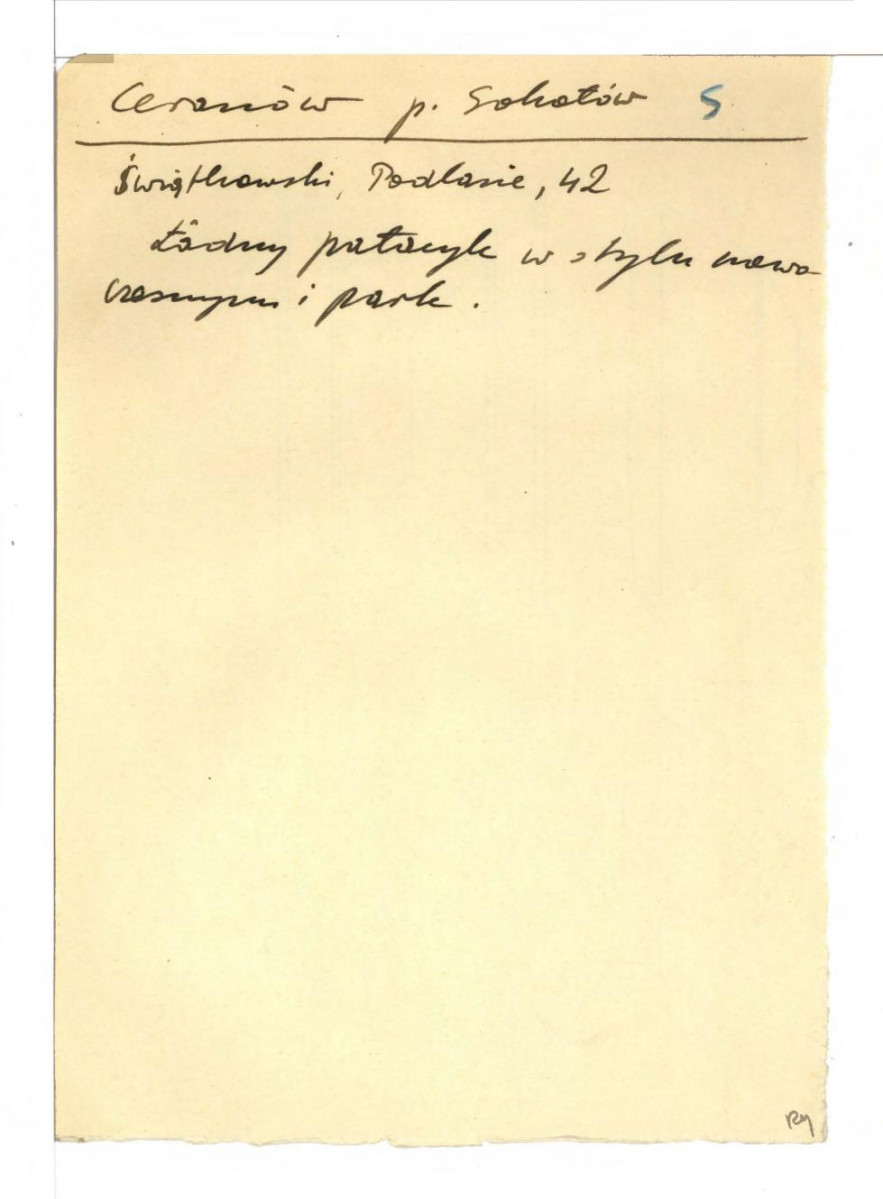 Ceranów p. Sokołów S
Świątkowski, Podlasie, 42
Ładny pałacyk w stylu nowo-
czesnym i park.